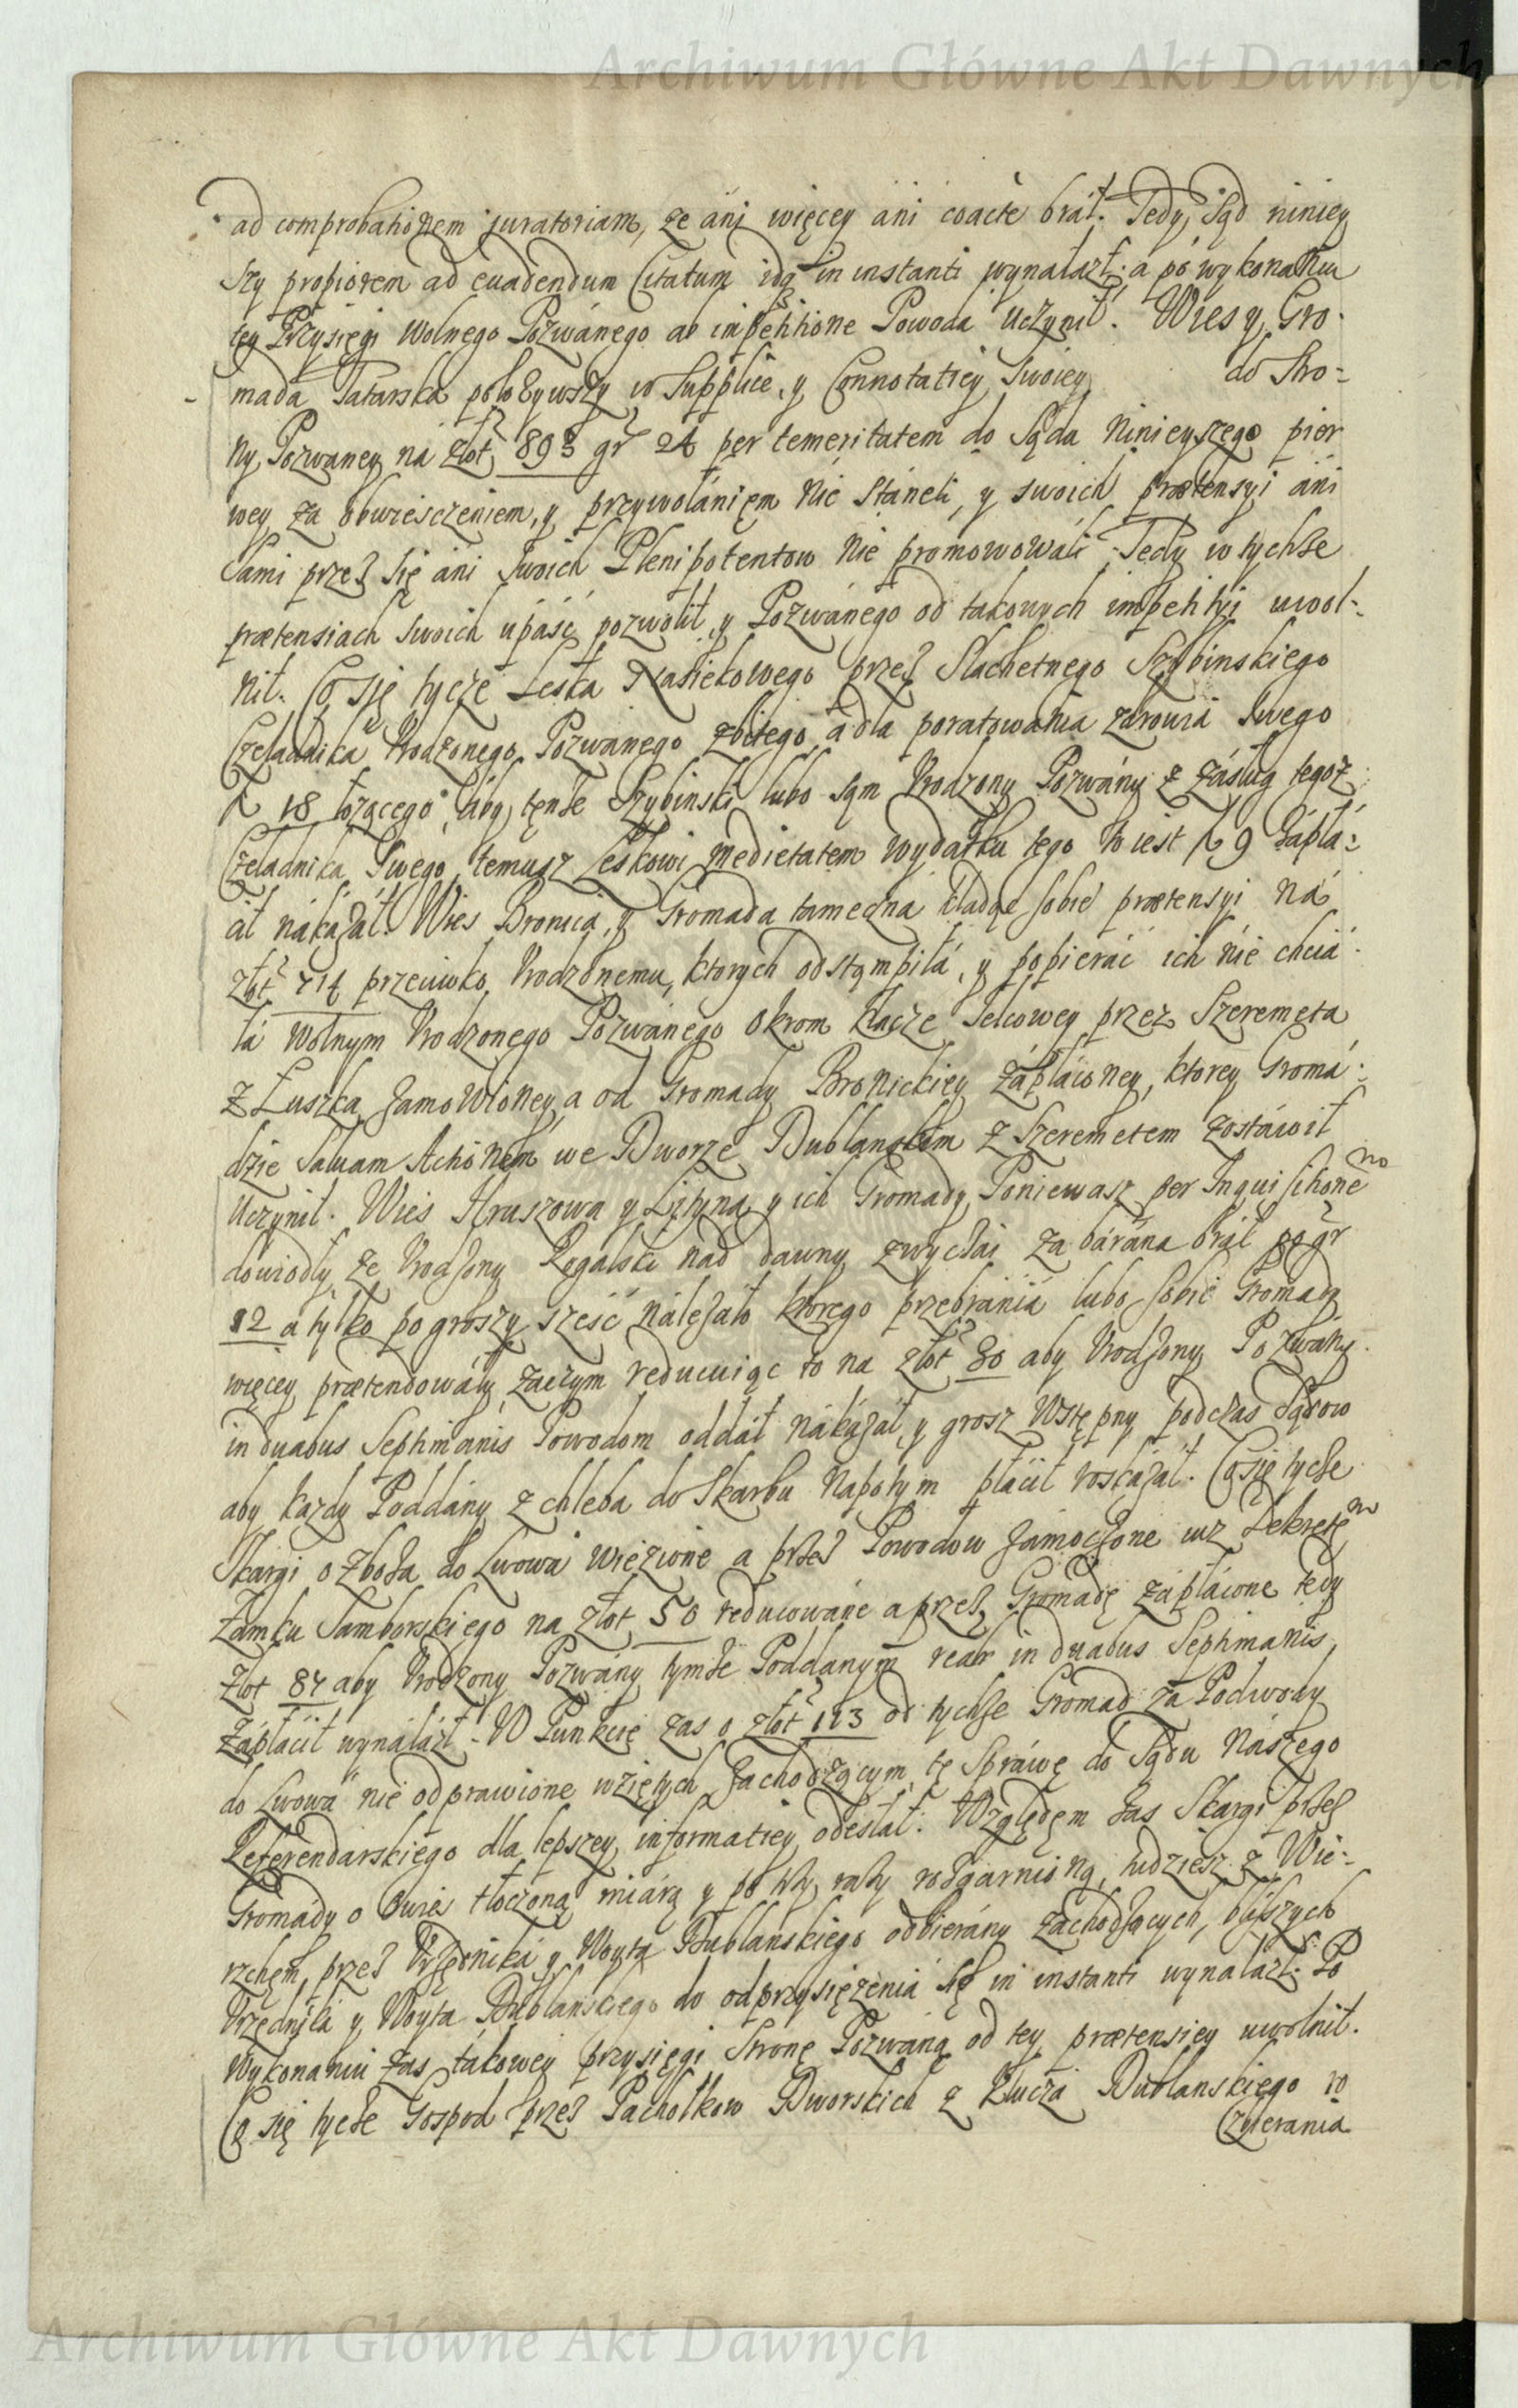 Archiwum Główne Akt Dawnych
ad comprobationem juratoriam, ze ani więcey ani coacte brał. Tedy Sąd niniey
szy propiorem ad euadendum Citatum idq in instanti wynalazł; a po wykonaniu
tey Przysięgi Wolnego Pozwánego ab impetitione Powoda Uczynił. Wies y Gro-
mada Tatarska położywszy w Supplice, y Connotatiey Swoiey do Stro=
ny Pozwaney ná złot 893 gr 24 per temeritatem do Sądu Ninieyszego pier
wey za obwiesczeniem, y przywołániem Nie Stáneli, y swoich prætensyi áni
Sami przez Się áni Swoich Plenipotentow Nie promowowáli Tedy w tychże
prætensiach Swoich upaść pozwolił, y Pozwánego od takowych impetityi uwol-
nił. Co się tycze Leska Nasiekowego przez Slachetnego Szybinskiego
Czeladnika Vrodzonego Pozwanego zbitego, á dla poratowania zdrowia Swego
18 łożącego, áby tęnże Szybinski lubo sąm Vrodzony Pozwány z zásług tegoz
Czeladnika Swego temusz Leskowi medietatem wydatku tego to iest 9 Zápła=
ćił nákazał. Wies Bronica, y Gromada tameczna kładąc sobie prætensyi Ná
złot 714 przeciwko Vrodzonemu, ktorych odstąmpiłá, y popieráć ich nie chciá-
łá Wolnym Vrodzonego Pozwánego Okrom Klacze Selcowey przez Szeremeta
z Łuszka Zamowioney, a od Gromady Bronickiey Zápłáconey, ktorey Gromá-
dzie Saluam Actionem we Dworze Dublanskim z Szeremetem zostáwił
Uczynił. Wies Hruszowa y Lityna y ich Gromady Poniewasz per Inquisitione no
dowiodły ze Vrodzony Rogalski nad dawny zwyczái za bárána brał po gr
12 a tylko po groszy sześć náleżało ktorego przebránia lubo sobie Gromady
więcey prætendowały zaczym reducuiąc to na złot 80 aby Vrodzony Pozwány
in duabus Septimanis Powodom oddał nákazał, y grosz Wstępny podczas Sądow
aby kazdy Poddány z chleba do Skarbu Napotym płaćił roskazał. Co się tycze
Skargi o zboża do Lwowá wiezione a przez Powodow Zámoczone iuz Dekretę m
Zamku Samborskiego na złot 50 reducowáne a przez Gromadę zápłácone tedy
złot 87 aby Vrodzony Pozwány tymże Poddanym in duabus Septimanis
Zápłaćił wynálazł. W Punkcie zas o złot 113 od tychże Gromad za Podwody
do Lwowá nie odprawione wziętych Zachodzącym, tę Spráwę do Sądu Nászego
Referendarskiego dla lepszey informatiey odesłał. Względęm zas Skargi przez
Gromády o Owies tłoczoną miárą y po trzy razy rozgarnioną, tudziesz z Wie-
rzchęm, przez Vrzędnika y Woyta Dublanskiego odbierány zachodzących, bliższych
Vrzędnika y Woyta Dublanskiego do odprzysiężenia się in instanti wynalazł. Po
Wykonániu zas takowey przysięgi Stronę Pozwáną od tey prætensiey uwolnił.
Co się tycze Gospod przez Pachołkow Dworskich z Klucza Dublanskiego w
Czterania
Archiwum Główne Akt Dawnych